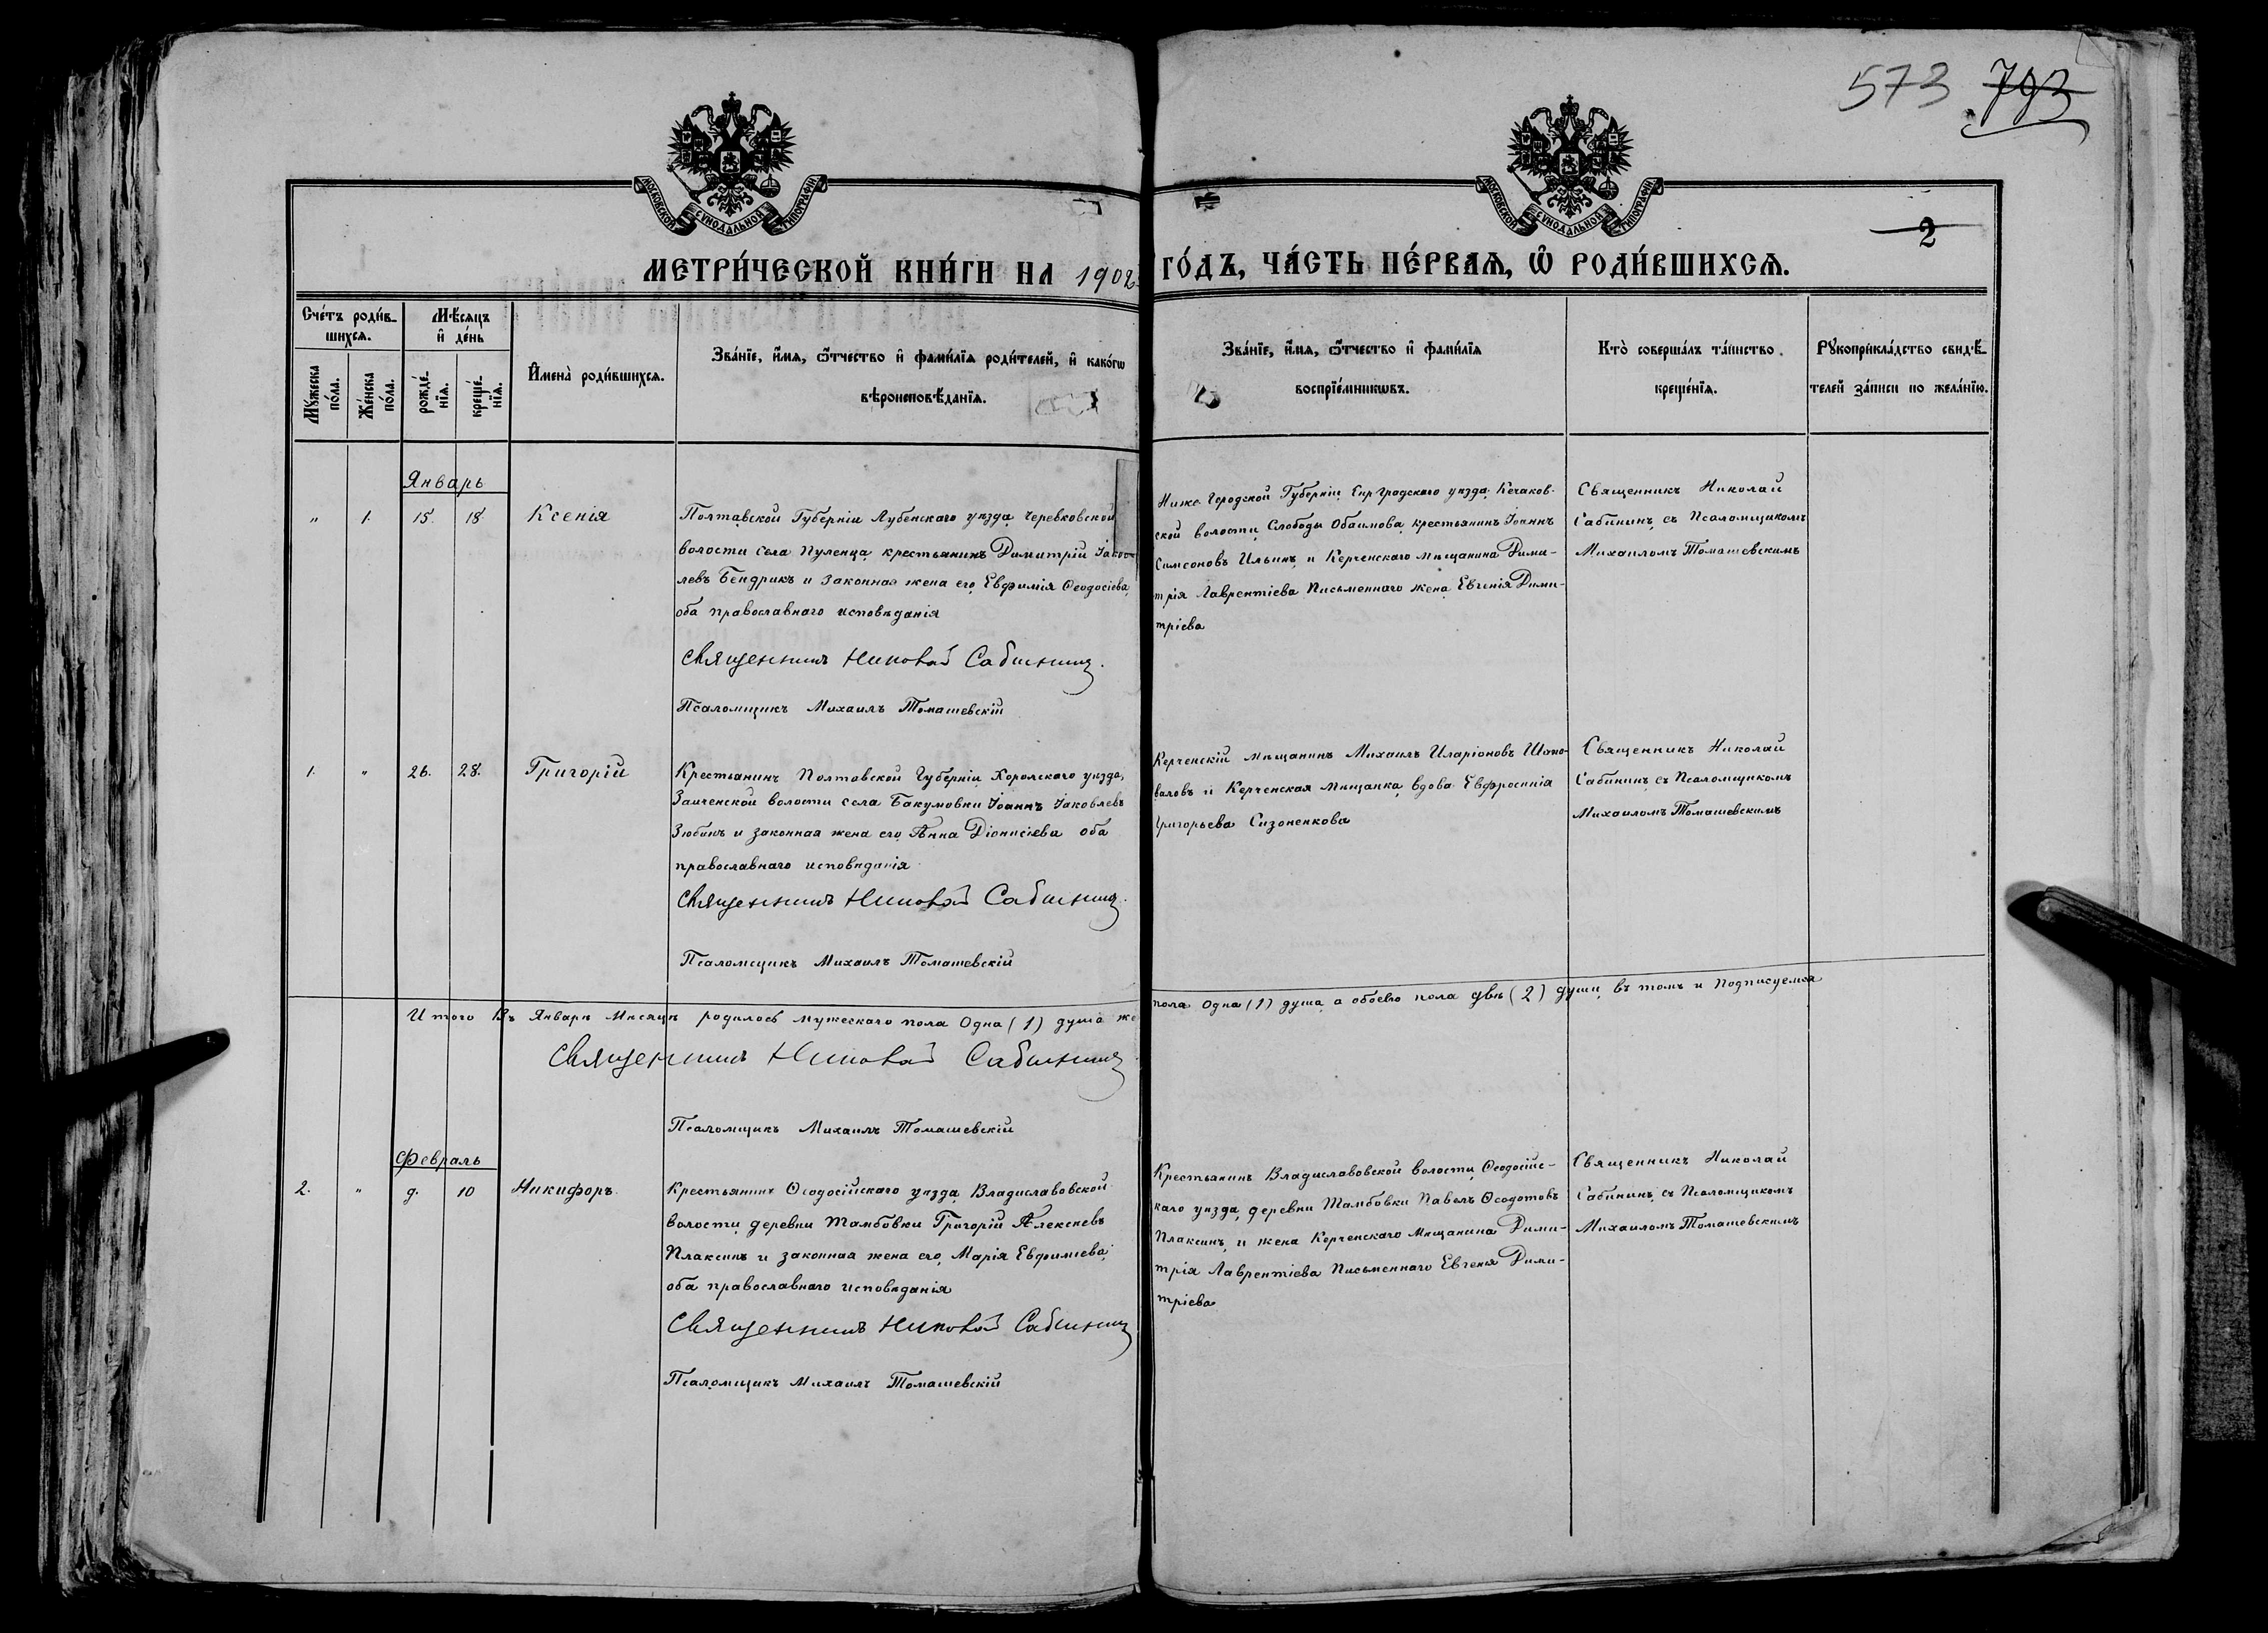 573 793
МОСКОВСКОЙ СѴНОДАЛЬНОЙ ТИПОГРАФІИ
МОСКОВСКОЙ СѴНОДАЛЬНОЙ ТИПОГРАФІИ
2
МЕТРИ́ЧЕСКОЙ КНИ́ГИ НА 1902 ГО́ДЪ, ЧА́СТЬ ПЕ́РВАѦ, Ѡ РОДИ́ВШИХСѦ.
Сче́тъ роди́в-
шихсѧ.
Мꙋ́жеска
по́ла.
Же́нска
по́ла.
Мѣ́сѧцъ
и҆ де́нь
рожде́-
нїѧ.
креще́-
нїѧ.
И҆мена̀ роди́вшихсѧ.
Зва́нїе, и҆́мѧ, ѻ҆́тчество и҆ фами́лїѧ роди́телей, и҆ како́гѡ
вѣроисповѣ́данїѧ.
Зва́нїе, и҆́мѧ, ѻ҆́тчество и҆ фами́лїѧ
воспрїе́мникѡвъ.
Кто̀ соверша́лъ та́инство
креще́нїѧ.
Рꙋкоприкла́дство свидѣ́-
телей за́писи по жела́нїю.
Январь
" 1. 15. 18. Ксенія
Полтавской Губерніи Лубенскаго уѣзда Черевковской
волости села Пуленца, крестьянинъ Димитрій Іаков-
левъ Бендрикъ и законная жена его Евфимія Ѳеодосіева,
оба православнаго исповѣданія
Священникъ Николай Сабининъ.
Псаломщикъ Михаилъ Томашевскій
Городской Губерніи, уѣзда
ской волости, Слободы крестьянинъ Іоаннъ
Симеоновъ Ильинъ, и Керченскаго мѣщанина Дими-
трія Лаврентіева Письменнаго жена Евгенія Дими-
тріева
Священникъ Николай
Сабининъ, съ Псаломщикомъ
Михаиломъ Томашевскимъ
1. " 26. 28. Григорій
Крестьянинъ Полтовской Губерніи, Хорольскаго уѣзда,
Заиченской волости села Бакумовки Іоаннъ Іаковлевъ
Зюбинъ и законная жена его Анна Діонисіева оба
православнаго исповѣданія
Священникъ Николай Сабининъ.
Псаломщикъ Михаилъ Томашевскій
Керченскій мѣщанинъ Михаилъ Иларіоновъ Шапо-
валовъ и Керченская мѣщанка, вдова Евфросинія
Григорьева Сизоненкова
Священникъ Николай
Сабининъ, съ Псаломщикомъ
Михаиломъ Томашевскимъ
Итого Въ Январѣ Мѣсяцѣ родилось мужескаго пола Одна (1) душа же пола Одна (1) душа, а обоего пола двѣ (2) души, въ томъ и Подписуемся
Священникъ Николай Сабининъ
Псаломщикъ Михаилъ Томашевскій
Февраль
2. " 9. 10 Никифоръ
Крестьянинъ Ѳеодосійскаго уѣзда, Владиславовской
волости, деревни Тамбовки Григорій Алексѣевъ
Плаксинъ и законная жена его, Марія Евфиміева,
оба православнаго исповѣданія
Священникъ Николай Сабининъ
Псаломщикъ Михаилъ Томашевскій
Крестьянинъ Владиславовской волости, Ѳеодосійс-
каго уѣзда, деревни Тамбовки Павелъ Ѳеодотовъ
Плаксинъ, и жена Керченскаго Мѣщанина Дими-
трія Лаврентіева Письменнаго Евгенія Дими-
тріева
Священникъ Николай
Сабининъ, съ Псаломщикомъ
Михаиломъ Томашевскимъ